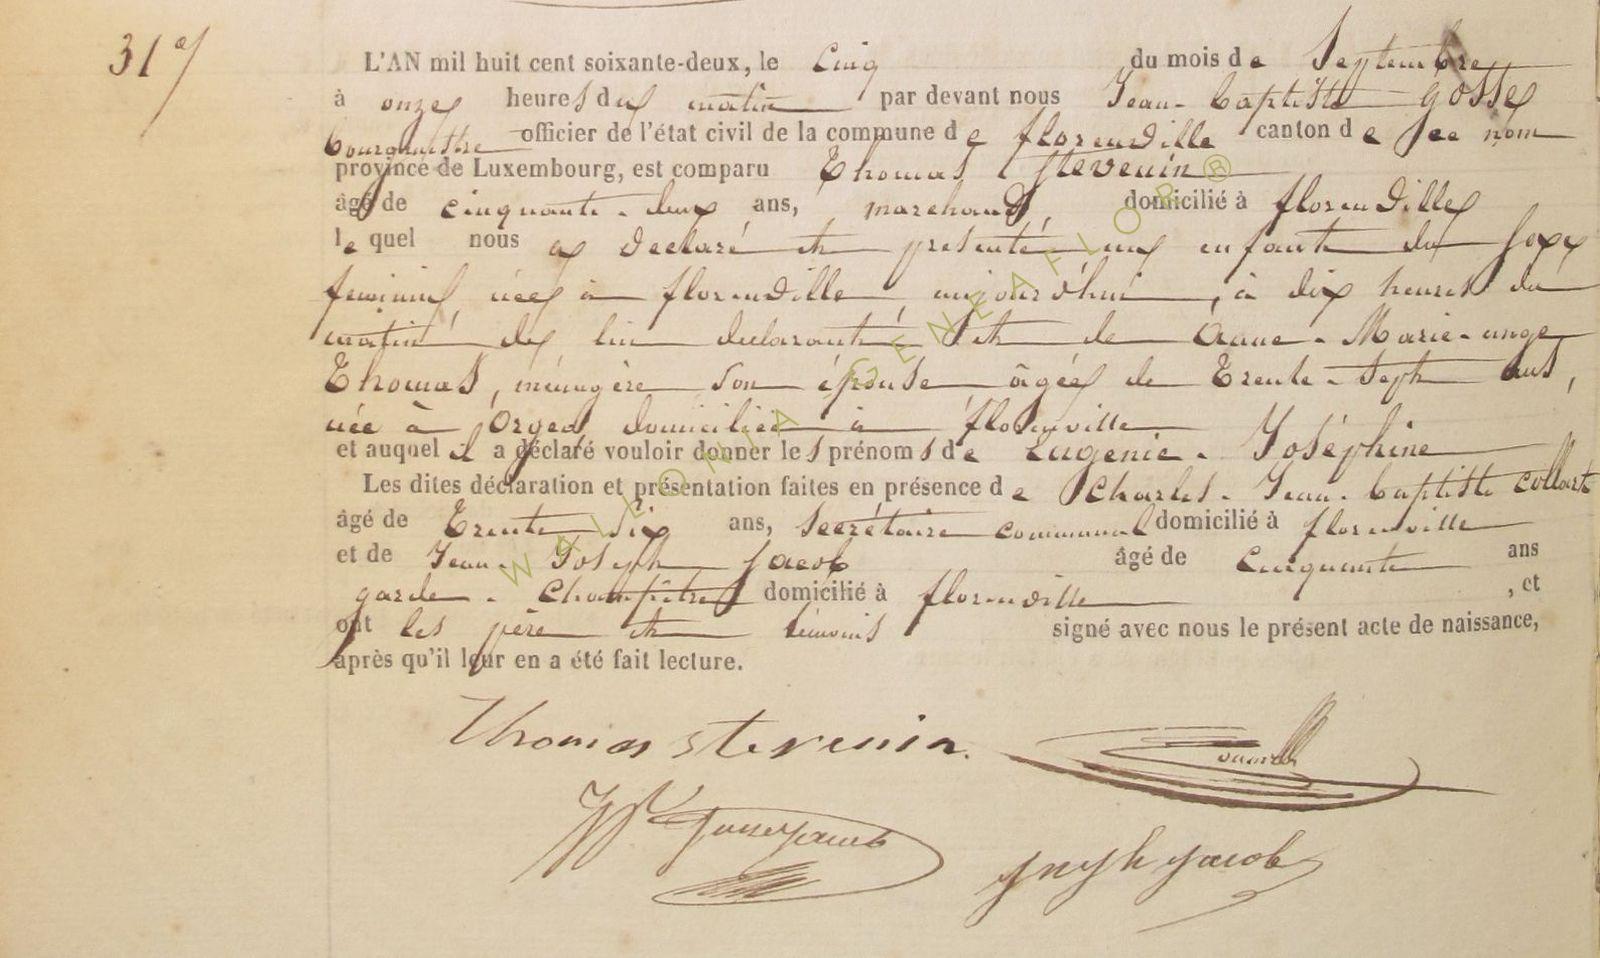 31e/
L'AN mil huit cent soixante-deux, le Cinq du mois de Septembre
à onze heures du matin par devant nous Jean-baptiste gosse
bourgmestre officier de l'état civil de la commune de florendille canton de ce nom
province de Luxembourg, est comparu Thomas Stevenin
âgé de cinquante-deux ans, marchand, domicilié à florendille
lequel nous a declaré et presenté un enfant du sexe
feminin, née à florendille aujourd'hui, à dix heures du
matin, de lui declarant et de Anne-Marie-ange
Thomas, ménagère son épouse âgée de Trente-sept ans,
née à Orgeo domiciliée à florenville
et auquel il a déclaré vouloir donner les prénoms de Eugenie-Joséphine
Les dites déclaration et présentation faites en présence de Charles-Jean-baptiste collart
âgé de Trente six ans, secrétaire communal domicilié à florenville
et de Jean-Joseph Jacob âgé de Cinquante ans
garde-Champêtre domicilié à florenville, et
ont les père et témoins signé avec nous le présent acte de naissance,
après qu'il leur en a été fait lecture.
Thomas stevenin.
Joseph Jacob
WALLONIA GENEAFLOR ®